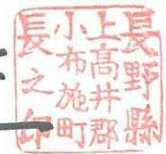 長野縣
上高井郡
小布施町
長之印